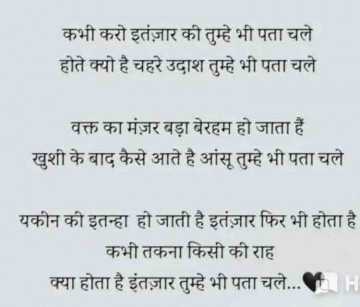 कभी करो इतंज़ार की तुम्हे भी पता चले
होते क्यो है चहरे उदाश तुम्हे भी पता चले
वक्त का मंज़र बड़ा बेरहम हो जाता हैं
खुशी के बाद कैसे आते है आंसू तुम्हे भी पता चले
यकीन की इतन्हा हो जाती है इतंज़ार फिर भी होता है
कभी तकना किसी की राह
क्या होता है इंतज़ार तुम्हे भी पता चले...🖤